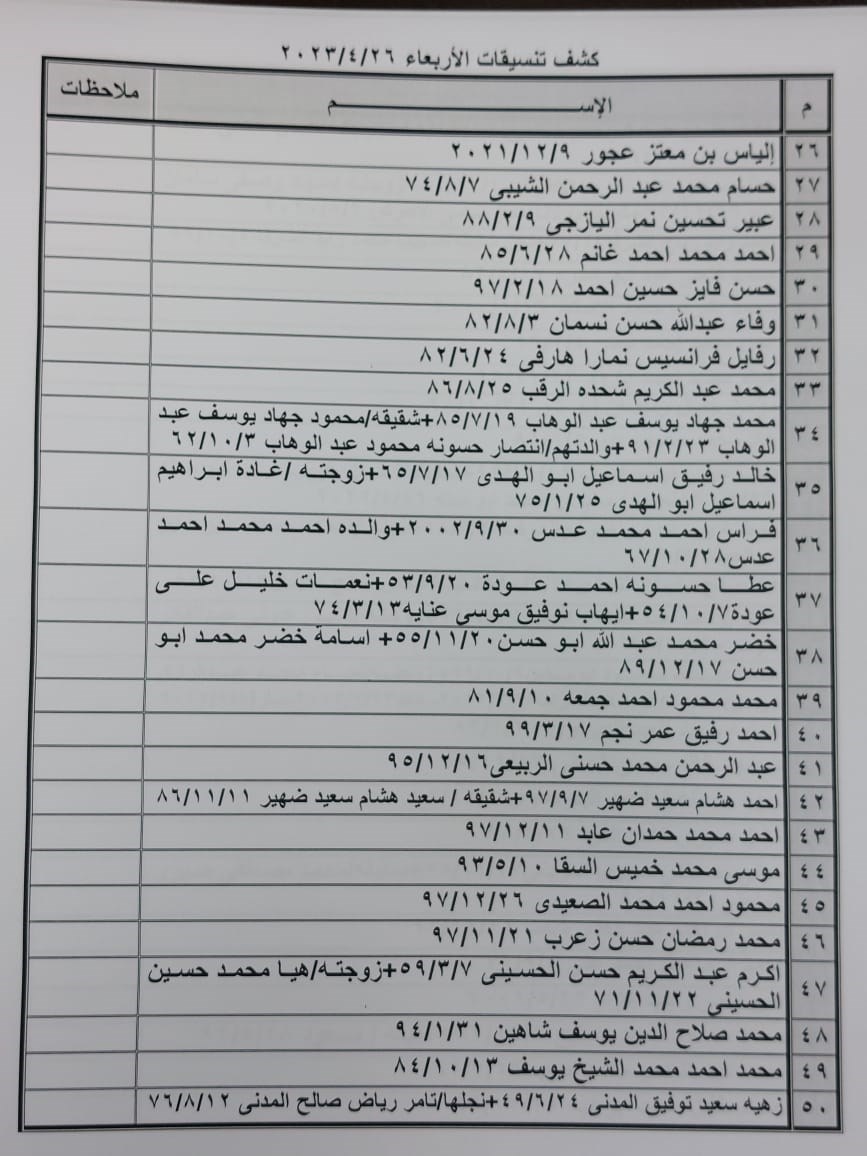 كشف تنسيقات الأربعاء ٢٠٢٣/٤/٢٦
م الإســـــم ملاحظات
٢٦ إلياس بن معتز عجور ٢٠٢١/١٢/٩
٢٧ حسام محمد عبد الرحمن الشيبى ٧٤/٨/٧
٢٨ عبير تحسين نمر اليازجى ٨٨/٢/٩
٢٩ احمد محمد احمد غانم ٨٥/٦/٢٨
٣٠ حسن فايز حسين احمد ٩٧/٢/١٨
٣١ وفاء عبدالله حسن نسمان ٨٢/٨/٣
٣٢ رفايل فرانسيس نمارا هارفى ٨٢/٦/٢٤
٣٣ محمد عبد الكريم شحده الرقب ٨٦/٨/٢٥
٣٤ محمد جهاد يوسف عبد الوهاب ٨٥/٧/١٩+شقيقه/محمود جهاد يوسف عبد
الوهاب ٩١/٢/٢٣+والدتهم/انتصار حسونه محمود عبد الوهاب ٦٢/١٠/٣
٣٥ خالد رفيق اسماعيل ابو الهدى ٦٥/٧/١٧+زوجته /غادة ابراهيم
اسماعيل ابو الهدى ٧٥/١/٢٥
٣٦ فراس احمد محمد عدس ٢٠٠٢/٩/٣٠+والده احمد محمد احمد
عدس٦٧/١٠/٢٨
٣٧ عطا حسونه احمد عودة ٥٣/٩/٢٠+نعمات خليل على
عودة٥٤/١٠/٧+ايهاب توفيق موسى عنايه٧٤/٣/١٣
٣٨ خضر محمد عبد الله ابو حسن٥٥/١١/٢٠+ اسامة خضر محمد ابو
حسن ٨٩/١٢/١٧
٣٩ محمد محمود احمد جمعه ٨١/٩/١٠
٤٠ احمد رفيق عمر نجم ٩٩/٣/١٧
٤١ عبد الرحمن محمد حسنى الربيعى٩٥/١٢/١٦
٤٢ احمد هشام سعيد ضهير ٩٧/٩/٧+شقيقه / سعيد هشام سعيد ضهير ٨٦/١١/١١
٤٣ احمد محمد حمدان عابد ٩٧/١٢/١١
٤٤ موسى محمد خميس السقا ٩٣/٥/١٠
٤٥ محمود احمد محمد الصعيدى ٩٧/١٢/٢٦
٤٦ محمد رمضان حسن زعرب ٩٧/١١/٢١
٤٧ اكرم عبد الكريم حسن الحسينى ٥٩/٣/٧+زوجته/هيا محمد حسين
الحسينى ٧١/١١/٢٢
٤٨ محمد صلاح الدين يوسف شاهين ٩٤/١/٣١
٤٩ محمد احمد محمد الشيخ يوسف ٨٤/١٠/١٣
٥٠ زهيه سعيد توفيق المدنى ٤٩/٦/٢٤+نجلها/تامر رياض صالح المدنى ٧٦/٨/١٢